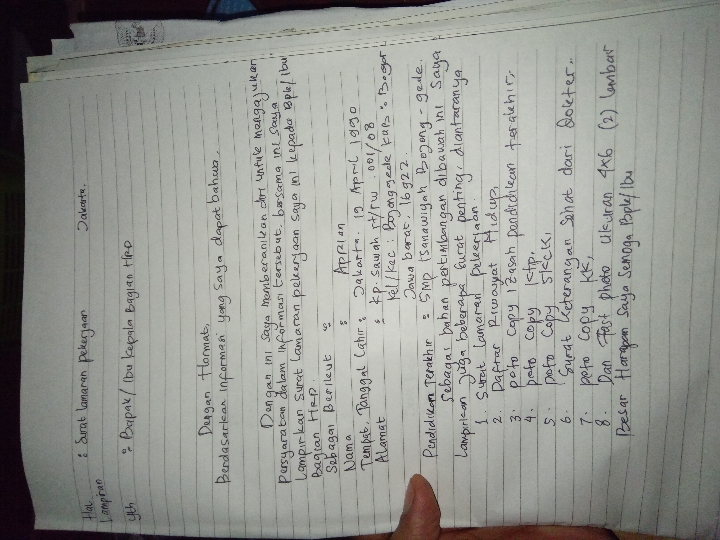 Hal : Surat lamaran pekerjaan Jakarta,
Lampiran
Yth : Bapak/Ibu kepala Bagian HRD
Dengan Hormat,
Berdasarkan informasi yang saya dapat bahwa,
Dengan ini saya memberanikan diri untuk mengajukan
Persyaratan dalam informasi tersebut, bersama ini saya
lampirkan surat lamaran pekerjaan saya ini kepada Bpk/Ibu
Bagian HRD.
Sebagai Berikut :
Nama : Aprian
Tempat, Tanggal Lahir : Jakarta. 19 April 1990
Alamat : Kp sawah rt/rw .001/08
kel/kec : Bojonggede kab : Bogor
Jawa barat. 16922.
Pendidikan Terakhir : SMP (Sanawiyah Bojong-gede.
Sebagai bahan pertimbangan dibawah ini saya
lampirkan juga beberapa surat penting, diantaranya
1. Surat lamaran pekerjaan.
2. Daftar Riwayat Hidup.
3. poto copy Izasah pendidikan terakhir,
4. poto copy Ktp,
5. poto copy SKCK,
6. Surat keterangan sehat dari Dokter.
7. poto copy KK,
8. Dan Past photo ukuran 4x6 (2) lembar
Besar Harapan saya semoga Bpk/Ibu